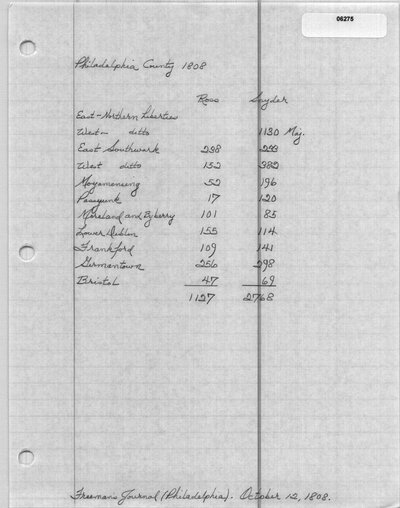 06275
Philadelphia County 1808
Ross Snyder
East-Northern Liberties
West- ditto 1130 Maj.
East Southwark 238 233
West ditto 152 382
Moyamensing 52 196
Passyunk 17 120
Moreland and Byberry 101 85
Lower Dublin 155 114
Frankford 109 141
Germantown 256 298
Bristol 47 69
1127 2768
Freeman's Journal (Philadelphia). October 12, 1808.